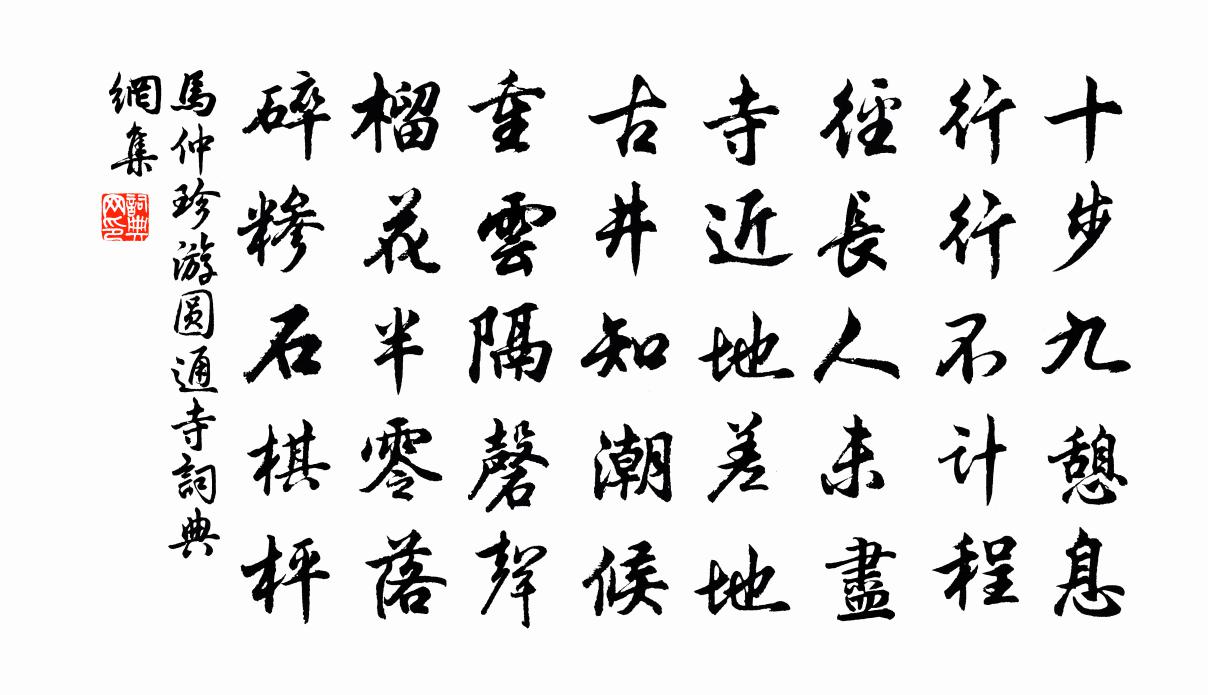 十步九憩息
行行不計程
徑長人未盡
寺近地差地
古井知潮候
重雲隔磬聲
榴花半零落
碎糝石棋枰
馬仲珍游圓通寺詞典
網集
詞典
网印